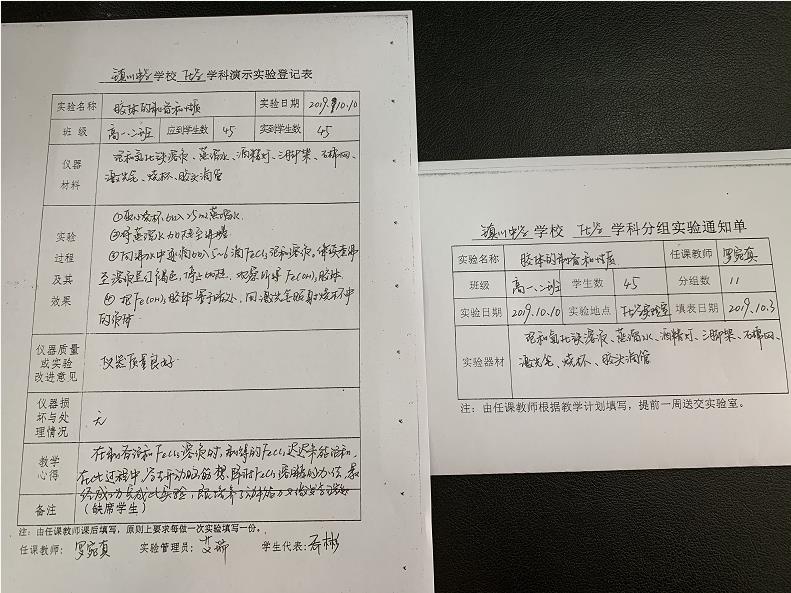 镇川中学 学校 化学 学科演示实验登记表
实验名称 胶体的制备和性质 实验日期 2019.10.10
班 级 高一.二班 应到学生数 45 实到学生数 45
仪器
材料
饱和氯化铁溶液、蒸馏水、酒精灯、三脚架、石棉网、
激光笔、烧杯、胶头滴管
实验
过程
及其
效果
①取小烧杯,加入25ml蒸馏水
②将蒸馏水加热至沸腾
③向沸水中逐滴加入5~6滴FeCl₃饱和溶液,继续煮沸
至溶液呈红褐色,停止加热,观察所得Fe(OH)₃胶体
④把Fe(OH)₃胶体置于暗处,用激光笔照射烧杯中
的液体
仪器质量
或实验
改进意见
仪器质量良好
仪器损
坏与处
理情况
无
教学
心得
在制备饱和FeCl₃溶液时,制得的FeCl₃迟迟未能饱和,
在此过程中,
备注
(缺席学生)
注:由任课教师课后填写,原则上要求每做一次实验填写一份。
任课教师: 罗宛真 实验管理员: 艾 学生代表: 彬
镇川中学 学校 化学 学科分组实验通知单
实验名称 胶体的制备和性质 任课教师 罗宛真
班级 高一.二班 学生数 45 分组数 11
实验日期 2019.10.10 实验地点 化学实验室 填表日期 2019.10.3
实验器材
饱和氯化铁溶液、蒸馏水、酒精灯、三脚架、石棉网、
激光笔、烧杯、胶头滴管
注:由任课教师根据教学计划填写,提前一周送交实验室。